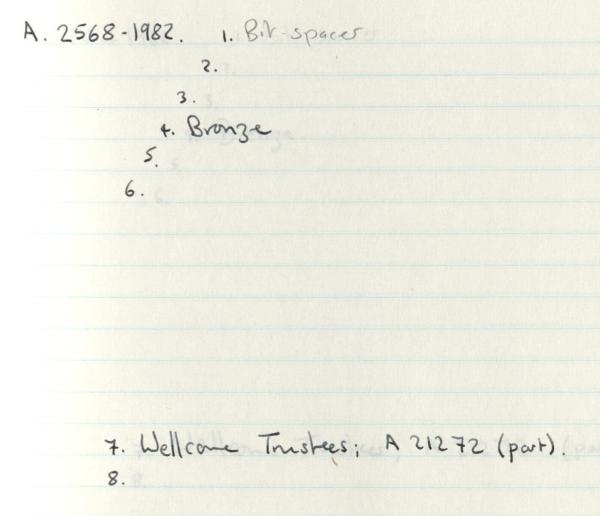 A. 2568-1982. 1. Bit-spacer
2.
3.
4. Bronze
5.
6.
7. Wellcome Trustees; A 21272 (part).
8.